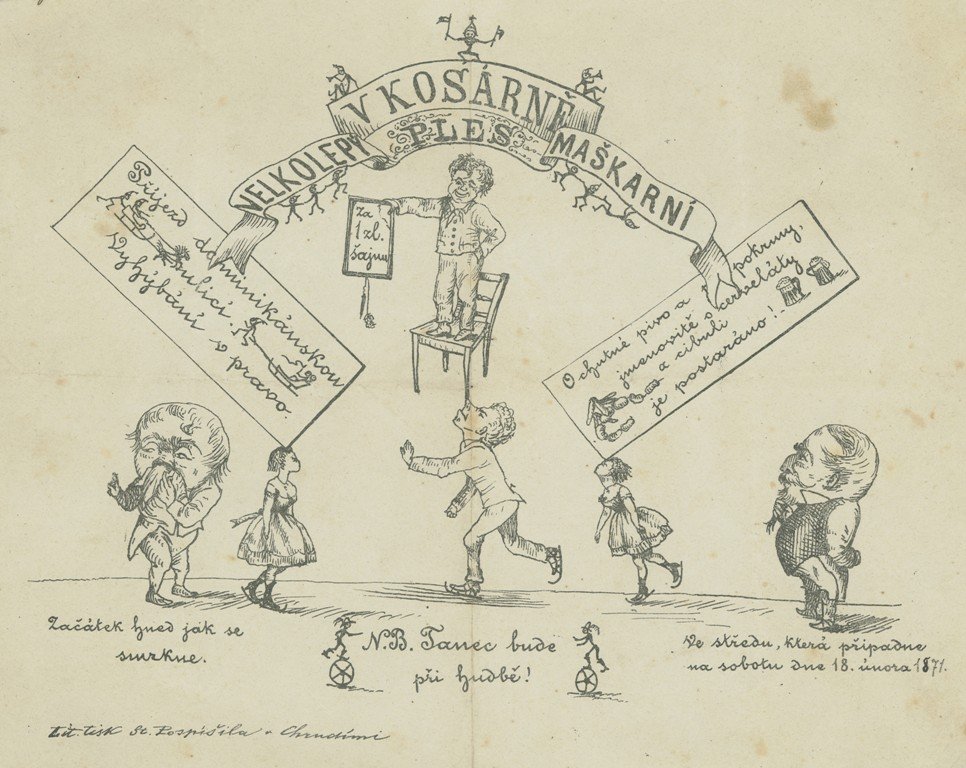 V KOSÁRNĚ
VELKOLEPÝ PLES MAŠKARNÍ
Za
1 zl.
šajnu
Příjezd dominikánskou
ulicí.
Vyhýbání v pravo.
O chutné pivo a pokrmy,
jmenovitě s cerveláty
a cibulí
je postaráno!
Začátek hned jak se
smrkne.
N.B. Tanec bude
při hudbě!
Ve středu, která připadne
na sobotu dne 18. února 1871.
Lit. tisk St. Pospíšila v Chrudimi